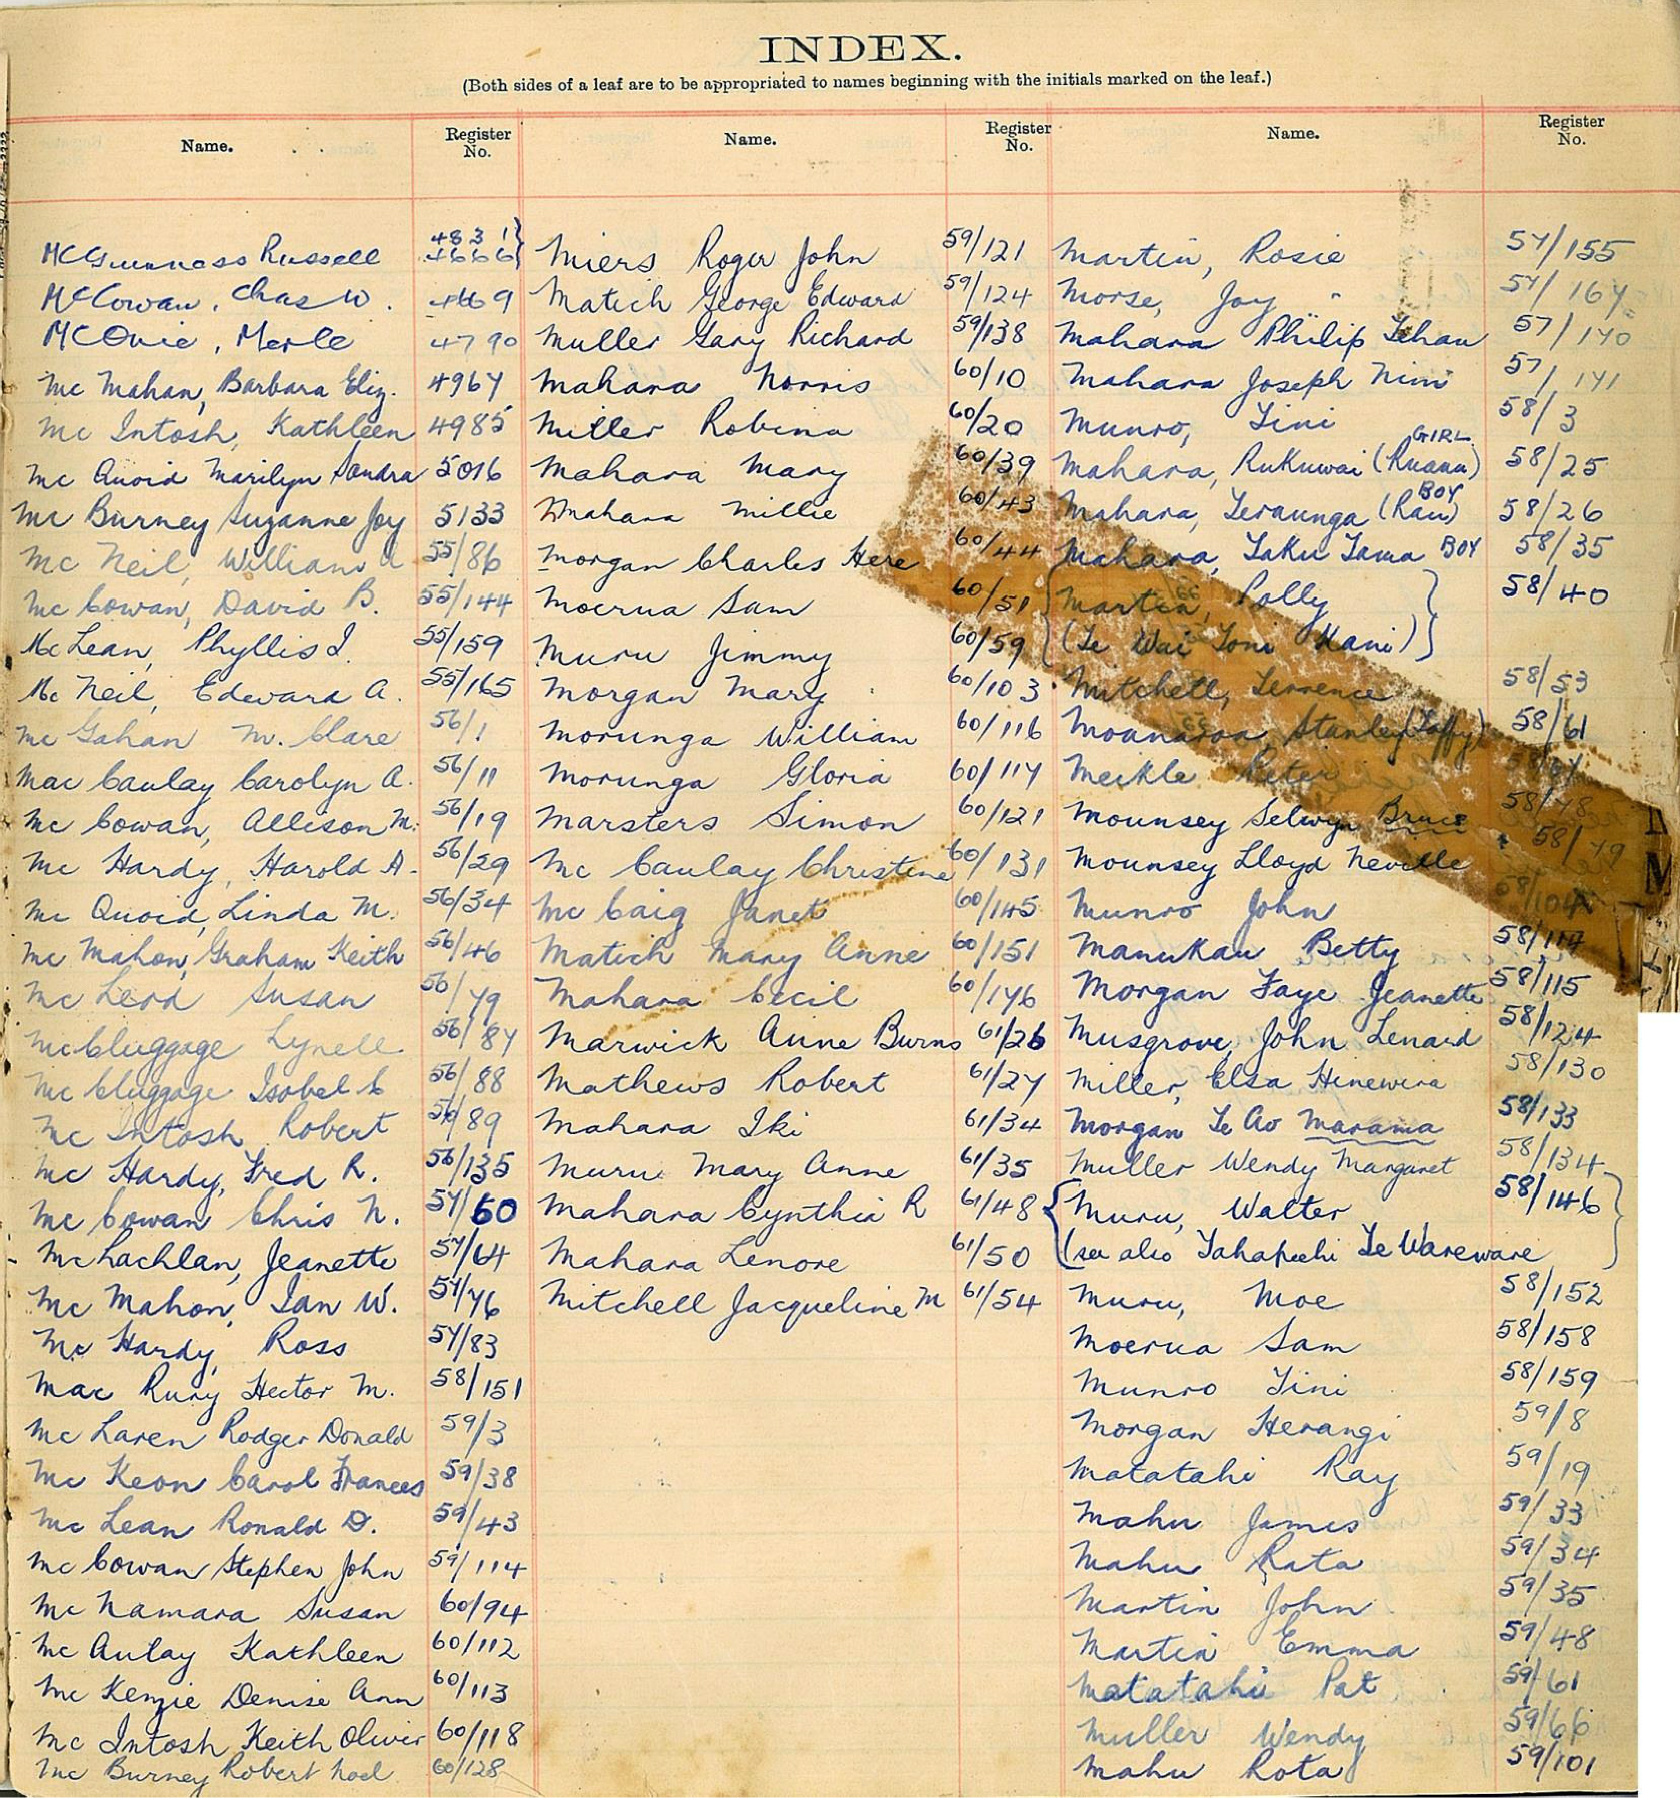 INDEX.
(Both sides of a leaf are to be appropriated to names beginning with the initials marked on the leaf.)
Name. Register No.
McGuinness Russell 4831 4666
McCowan, Chas W. 4669
McQuie, Merle 4790
Mc Mahan, Barbara Eliz. 4967
Mc Intosh, Kathleen 4985
Mc Quoid Marilyn Sandra 5016
Mc Burney Suzanne Joy 5133
Mc Neil, William 55/86
Mc Cowan, David B. 55/144
McLean, Phyllis I. 55/159
Mc Neil, Edward A. 55/165
Mc Gahan M. Clare 56/1
Mac Caulay Carolyn A. 56/11
Mc Cowan, Allison M. 56/19
Mc Hardy, Harold A. 56/29
Mc Quoid, Linda M. 56/34
Mc Mahon, Graham Keith 56/46
Mc Leod Susan 56/79
McCluggage Lynell 56/87
Mc Cluggage Isobel C 56/88
Mc Intosh Robert 56/89
Mc Hardy, Fred R. 56/135
Mc Cowan Chris N. 57/60
McLachlan, Jeanette 57/64
Mc Mahon, Ian W. 57/76
Mc Hardy, Ross 57/83
Mac Rury Hector M. 58/151
Mc Laren Rodger Donald 59/3
Mc Keon Carol Frances 59/38
Mc Lean Ronald D. 59/43
Mc Cowan Stephen John 59/114
Mc Namara Susan 60/94
Mc Aulay Kathleen 60/112
Mc Kenzie Denise Ann 60/113
Mc Intosh Keith Oliver 60/118
Mc Burney Robert Noel 60/128
Name. Register No.
Miers Roger John 59/121
Matich George Edward 59/124
Muller Gary Richard 59/138
Mahara Norris 60/10
Miller Robina 60/20
Mahara Mary 60/39
Mahara Millie 60/43
Morgan Charles Here 60/44
Moerua Sam 60/51
Muru Jimmy 60/59
Morgan Mary 60/103
Morunga William 60/116
Morunga Gloria 60/117
Marsters Simon 60/121
Mc Caulay Christine 60/131
Mc Caig Janet 60/145
Matich Mary Anne 60/151
Mahara Cecil 60/176
Marwick Anne Burns 61/26
Mathews Robert 61/27
Mahara Iki 61/34
Muru Mary Anne 61/35
Mahara Cynthia R 61/48
Mahara Lenore 61/50
Mitchell Jacqueline M 61/54
Name. Register No.
Martin, Rosie 57/155
Morse, Joy 57/167
Mahara Philip Tehau 57/170
Mahara Joseph Nimi 57/171
Munro, Tini 58/3
Mahara, Rukuwai (Ruana) GIRL 58/25
Mahara, Teraunga (Rau) BOY 58/26
Mahara, Taku Tama BOY 58/35
Martin, Polly 58/40
(Te Wai Toni Kani)
Mitchell, Terrence 58/53
Moanaroa, Stanley (Taffy) 58/61
Meikle Peter
Mounsey Selwyn Bruce 58/78
Mounsey Lloyd Neville 58/79
Munro John 58/104
Manukau Betty 58/114
Morgan Faye Jeanette 58/115
Musgrove, John Lenard 58/124
Miller, Elsa Hinewira 58/130
Morgan Te Ao Marama 58/133
Muller Wendy Margaret 58/134
Muru, Walter 58/146
(see also Tahapeehi Te Wareware
Muru, Moe 58/152
Moerua Sam 58/158
Munro Tini 58/159
Morgan Herangi 59/8
Matatahi Ray 59/19
Mahu James 59/33
Mahu Rata 59/34
Martin John 59/35
Martin Emma 59/48
Matatahi Pat 59/61
Muller Wendy 59/66
Mahu Rota 59/101
M